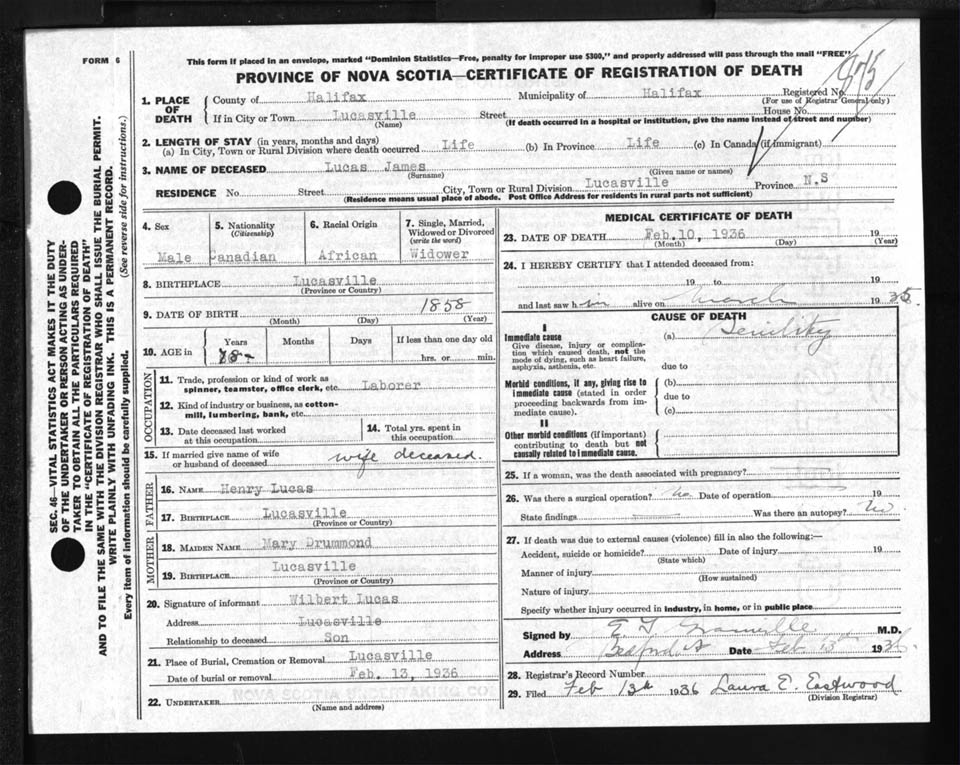 FORM 6
This form if placed in an envelope, marked "Dominion Statistics—Free, penalty for improper use $300," and properly addressed will pass through the mail "FREE"
PROVINCE OF NOVA SCOTIA—CERTIFICATE OF REGISTRATION OF DEATH
1. PLACE OF DEATH
County of Halifax Municipality of Halifax Registered No.
(For use of Registrar General only)
If in City or Town Lucasville Street House No.
(Name) (If death occurred in a hospital or institution, give the name instead of street and number)
2. LENGTH OF STAY (in years, months and days)
(a) In City, Town or Rural Division where death occurred Life (b) In Province Life (c) In Canada (if immigrant)
3. NAME OF DECEASED Lucas James
(Surname) (Given name or names)
RESIDENCE No. Street City, Town or Rural Division Lucasville Province N.S
(Residence means usual place of abode. Post Office Address for residents in rural parts not sufficient)
4. Sex Male
5. Nationality (Citizenship) Canadian
6. Racial Origin African
7. Single, Married, Widowed or Divorced (write the word) Widower
8. BIRTHPLACE Lucasville
(Province or Country)
9. DATE OF BIRTH 1858
(Month) (Day) (Year)
10. AGE in Years Months Days If less than one day old
hrs. or min.
OCCUPATION
11. Trade, profession or kind of work as spinner, teamster, office clerk, etc. Laborer
12. Kind of industry or business, as cotton-mill, lumbering, bank, etc.
13. Date deceased last worked at this occupation
14. Total yrs. spent in this occupation
15. If married give name of wife or husband of deceased wife deceased.
FATHER
16. NAME Henry Lucas
17. BIRTHPLACE Lucasville
(Province or Country)
MOTHER
18. MAIDEN NAME Mary Drummond
19. BIRTHPLACE Lucasville
(Province or Country)
20. Signature of informant Wilbert Lucas
Address Lucasville
Relationship to deceased Son
21. Place of Burial, Cremation or Removal Lucasville
Date of burial or removal Feb. 13, 1936
NOVA SCOTIA UNDERTAKING CO
22. UNDERTAKER
(Name and address)
MEDICAL CERTIFICATE OF DEATH
23. DATE OF DEATH Feb.10, 1936 19
(Month) (Day) (Year)
24. I HEREBY CERTIFY that I attended deceased from:
19 to 19
and last saw him alive on March 1935.
CAUSE OF DEATH
I
Immediate cause (a) Senility
Give disease, injury or complication which caused death, not the mode of dying, such as heart failure, asphyxia, asthenia, etc.
due to
Morbid conditions, if any, giving rise to immediate cause (stated in order proceeding backwards from immediate cause).
(b)
due to
(c)
II
Other morbid conditions (if important) contributing to death but not causally related to immediate cause.
25. If a woman, was the death associated with pregnancy?
26. Was there a surgical operation? No Date of operation 19
State findings Was there an autopsy? No
27. If death was due to external causes (violence) fill in also the following:—
Accident, suicide or homicide? Date of injury 19
(State which)
Manner of injury
(How sustained)
Nature of injury
Specify whether injury occurred in industry, in home, or in public place
Signed by M.D.
Address Date Feb 13 1936
28. Registrar's Record Number
29. Filed Feb 13th 1936 Laura E. Eastwood
(Division Registrar)
SEC. 46—VITAL STATISTICS ACT MAKES IT THE DUTY
OF THE UNDERTAKER OR PERSON ACTING AS UNDER-
TAKER TO OBTAIN ALL THE PARTICULARS REQUIRED
IN THE "CERTIFICATE OF REGISTRATION OF DEATH"
AND TO FILE THE SAME WITH THE DIVISION REGISTRAR WHO SHALL ISSUE THE BURIAL PERMIT.
WRITE PLAINLY WITH UNFADING INK. THIS IS A PERMANENT RECORD.
Every item of information should be carefully supplied. (See reverse side for instructions.)